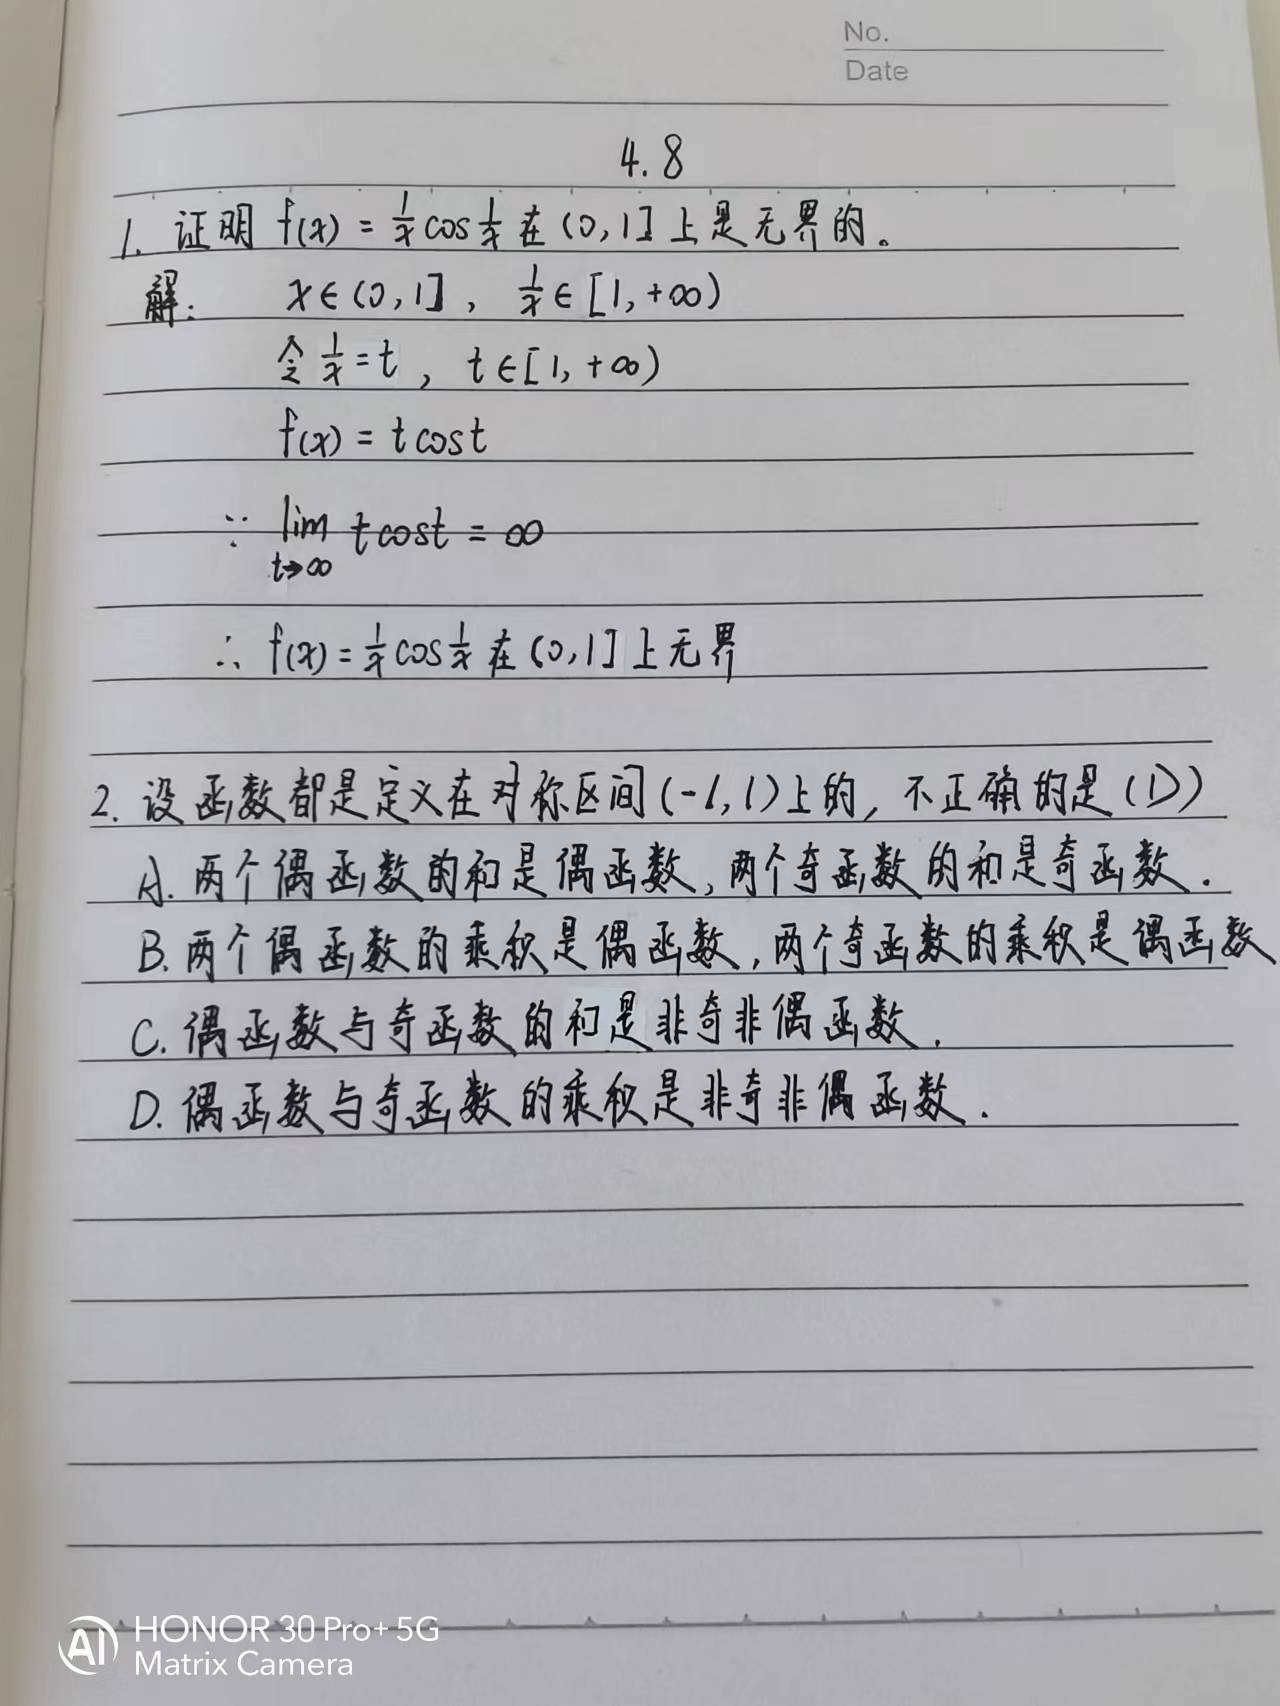 No.
Date
4.8
1. 证明 f(x) = 1/x cos 1/x 在 (0,1] 上是无界的。
解: x∈(0,1], 1/x∈[1,+∞)
令 1/x = t, t∈[1,+∞)
f(x) = t cost
∵ lim t cost = ∞
t→∞
∴ f(x) = 1/x cos 1/x 在 (0,1] 上无界
2. 设函数都是定义在对称区间(-l,l)上的, 不正确的是(D)
A. 两个偶函数的和是偶函数, 两个奇函数的和是奇函数.
B. 两个偶函数的乘积是偶函数, 两个奇函数的乘积是偶函数
C. 偶函数与奇函数的和是非奇非偶函数.
D. 偶函数与奇函数的乘积是非奇非偶函数.
AI HONOR 30 Pro+ 5G
Matrix Camera